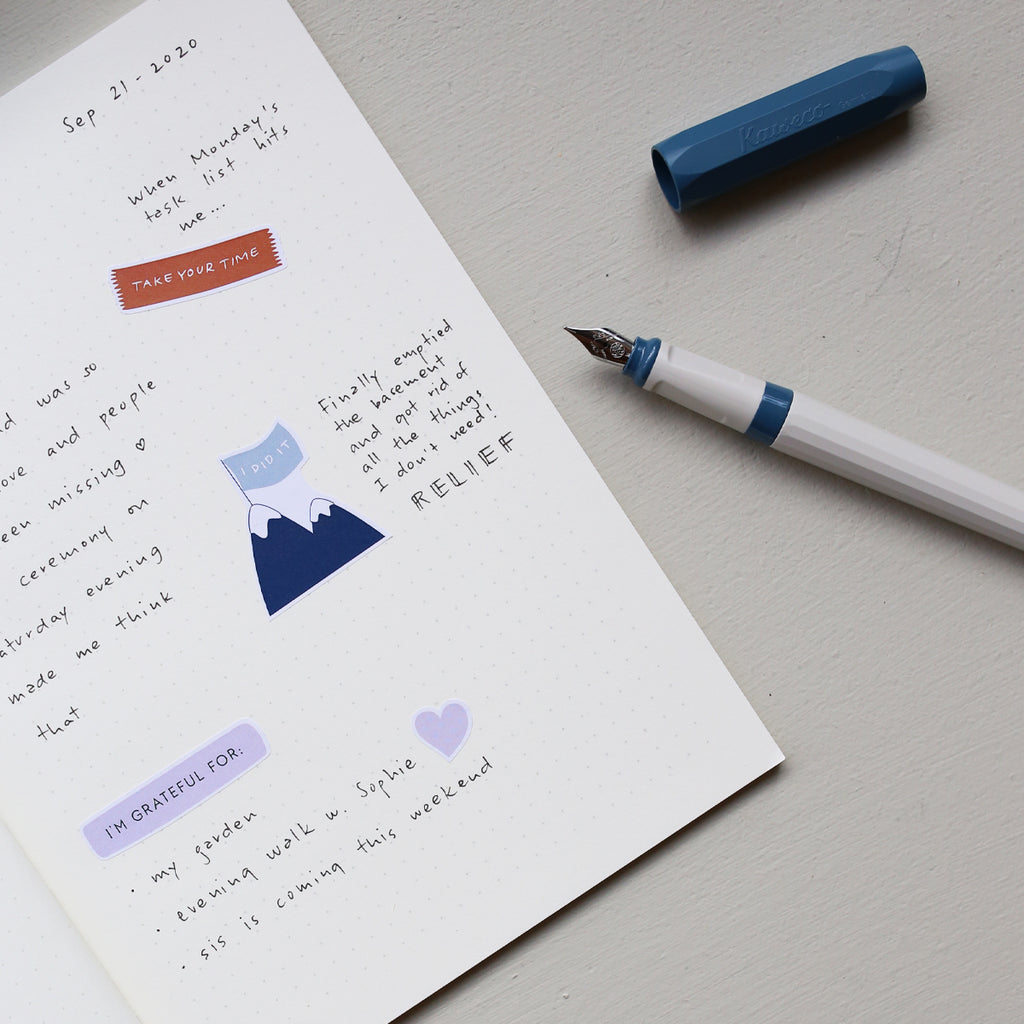 Sep 21 - 2020
when Monday's
task list hits
me...
TAKE YOUR TIME
was so
and people
missing ♡
ceremony on
evening
made me think
that
I DID IT
Finally emptied
the basement
and got rid of
all the things
I don't need!
RELIEF
I'M GRATEFUL FOR:
• my garden
• evening walk w. Sophie
• sis is coming this weekend
Kaweco